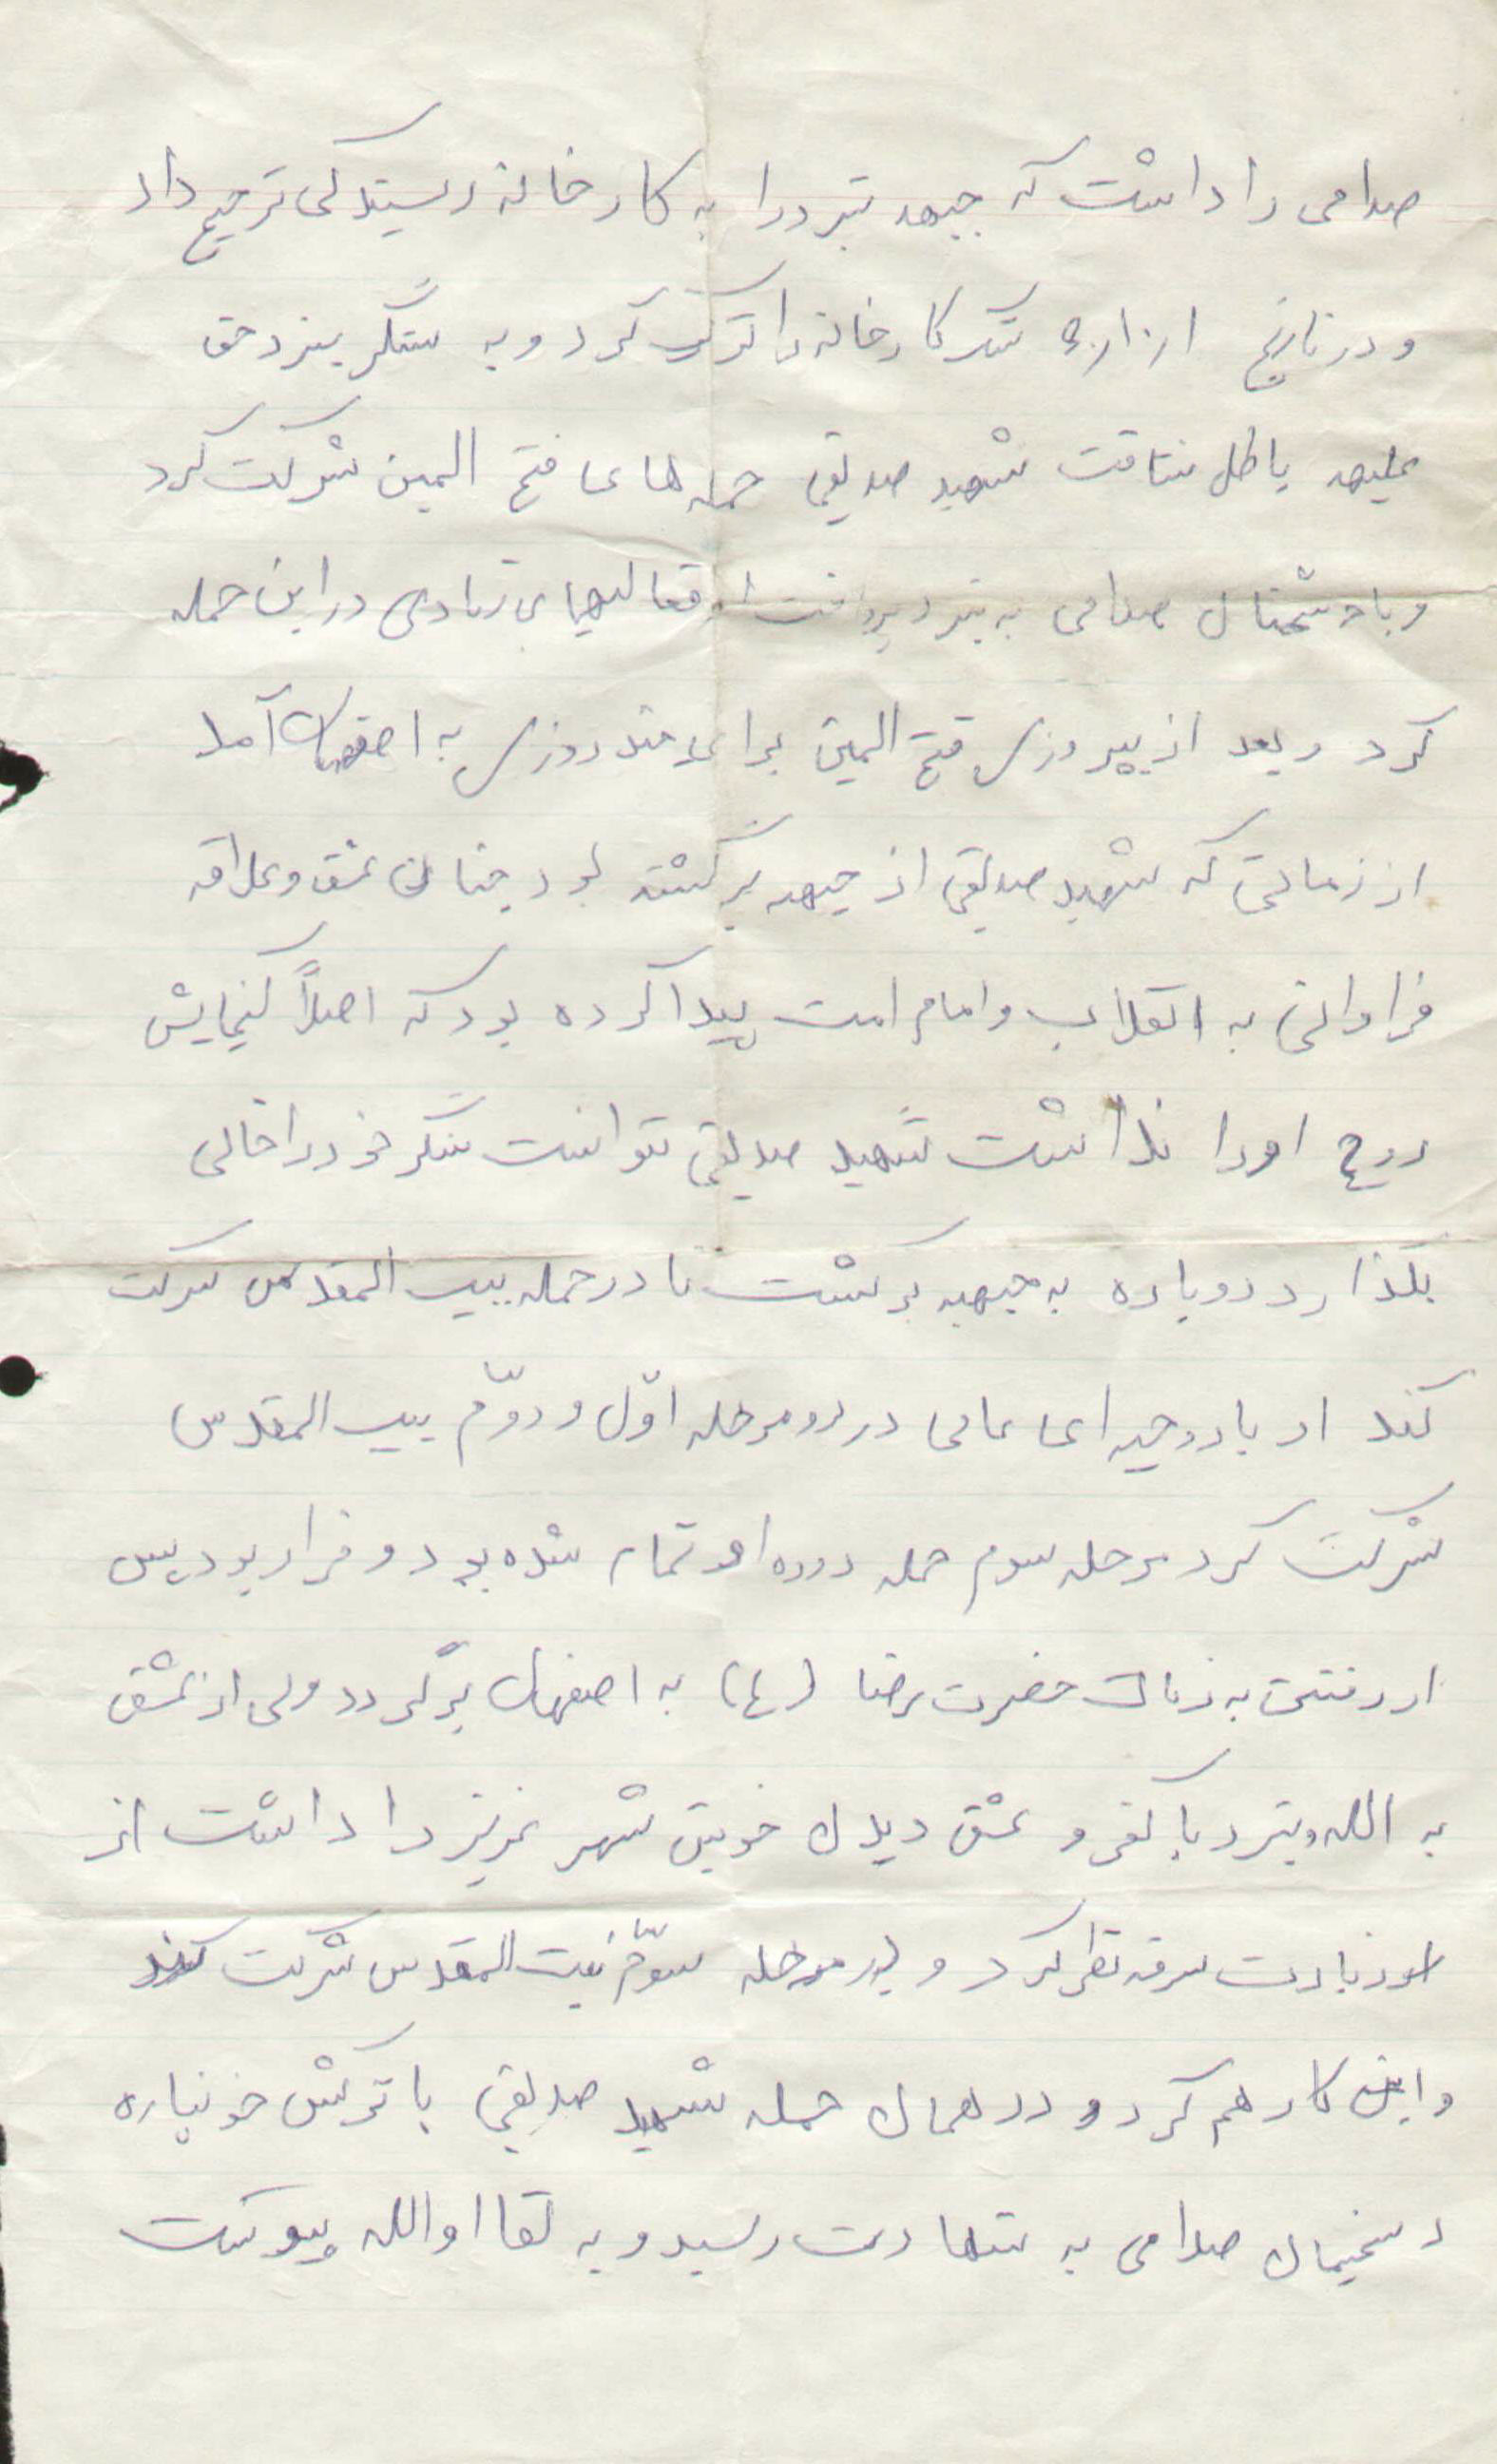 صدامی را داشت که جبهه نبرد را به کارخانه ریسندگی ترجیح داد
و در تاریخ سنگر کارخانه را ترک کرد و به سنگر نبرد حق
علیه باطل شتافت شهید صدیقی حمله های فتح المبین شرکت کرد
و با دشمنان صدامی به نبرد پرداخت او فعالیهای زیادی در این حمله
کرد و بعد از پیروزی فتح المبین برای چند روزی به اصفهان آمد
از زمانی که شهید صدیقی از جبهه برگشته بود چنان عشق و علاقه
فراوانی به انقلاب و امام امت پیدا کرده بود که اصلاً گنجایش
روح او را نداشت شهید صدیقی نتوانست سنگر خود را خالی
بگذارد دوباره به جبهه برگشت تا در حمله بیت المقدس شرکت
کند او با روحیه ای عالی در دو مرحله اوّل و دوّم بیت المقدس
شرکت کرد مرحله سوم حمله دوره او تمام شده بود و قرار بود پس
از رفتن به زیارت حضرت رضا (ع) به اصفهان برگردد ولی از عشق
به الله و نبرد با کفر و عشق دیدن خونین شهر عزیز را داشت از
زیارت صرفه نظر کرد و در مرحله سوّم بیت المقدس شرکت کند
و این کار هم کرد و در همان حمله شهید صدیقی با ترکش خونپاره
دشمنان صدامی به شهادت رسید و به لقا الله پیوست